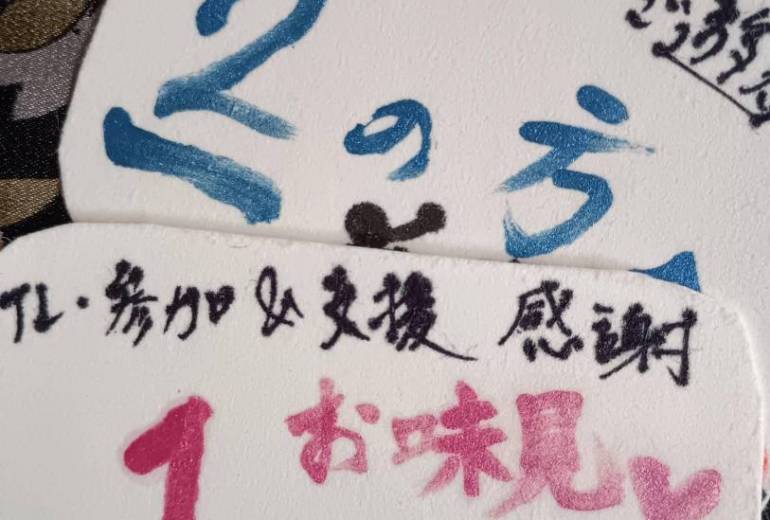 2の方
TL・参加&支援 感謝
1 お味見♥